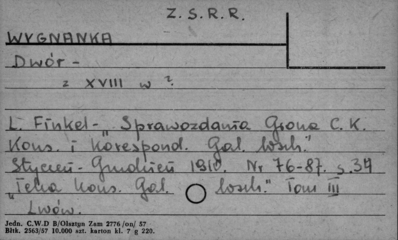 Z. S. R. R.
WYGNANKA
Dwór -
z XVIII w ?
L. Finkel - "Sprawozdania Grona C. K.
Kons. i Korespond. Gal. wsch."
Styczeń - Grudzień 1910. Nr 76-87. s. 34
"Teka Kons. Gal. wsch." Tom III
Lwów.
Jedn. C.W.D B/Olsztyn Zam 2776/on/ 57
Bltk. 2563/57 10.000 szt. karton kl. 7 g 220.